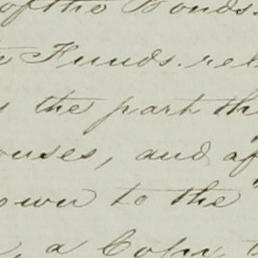 of the Bonds.
Funds. rel
the part th
ouses, and af
own to the "
, a Copy